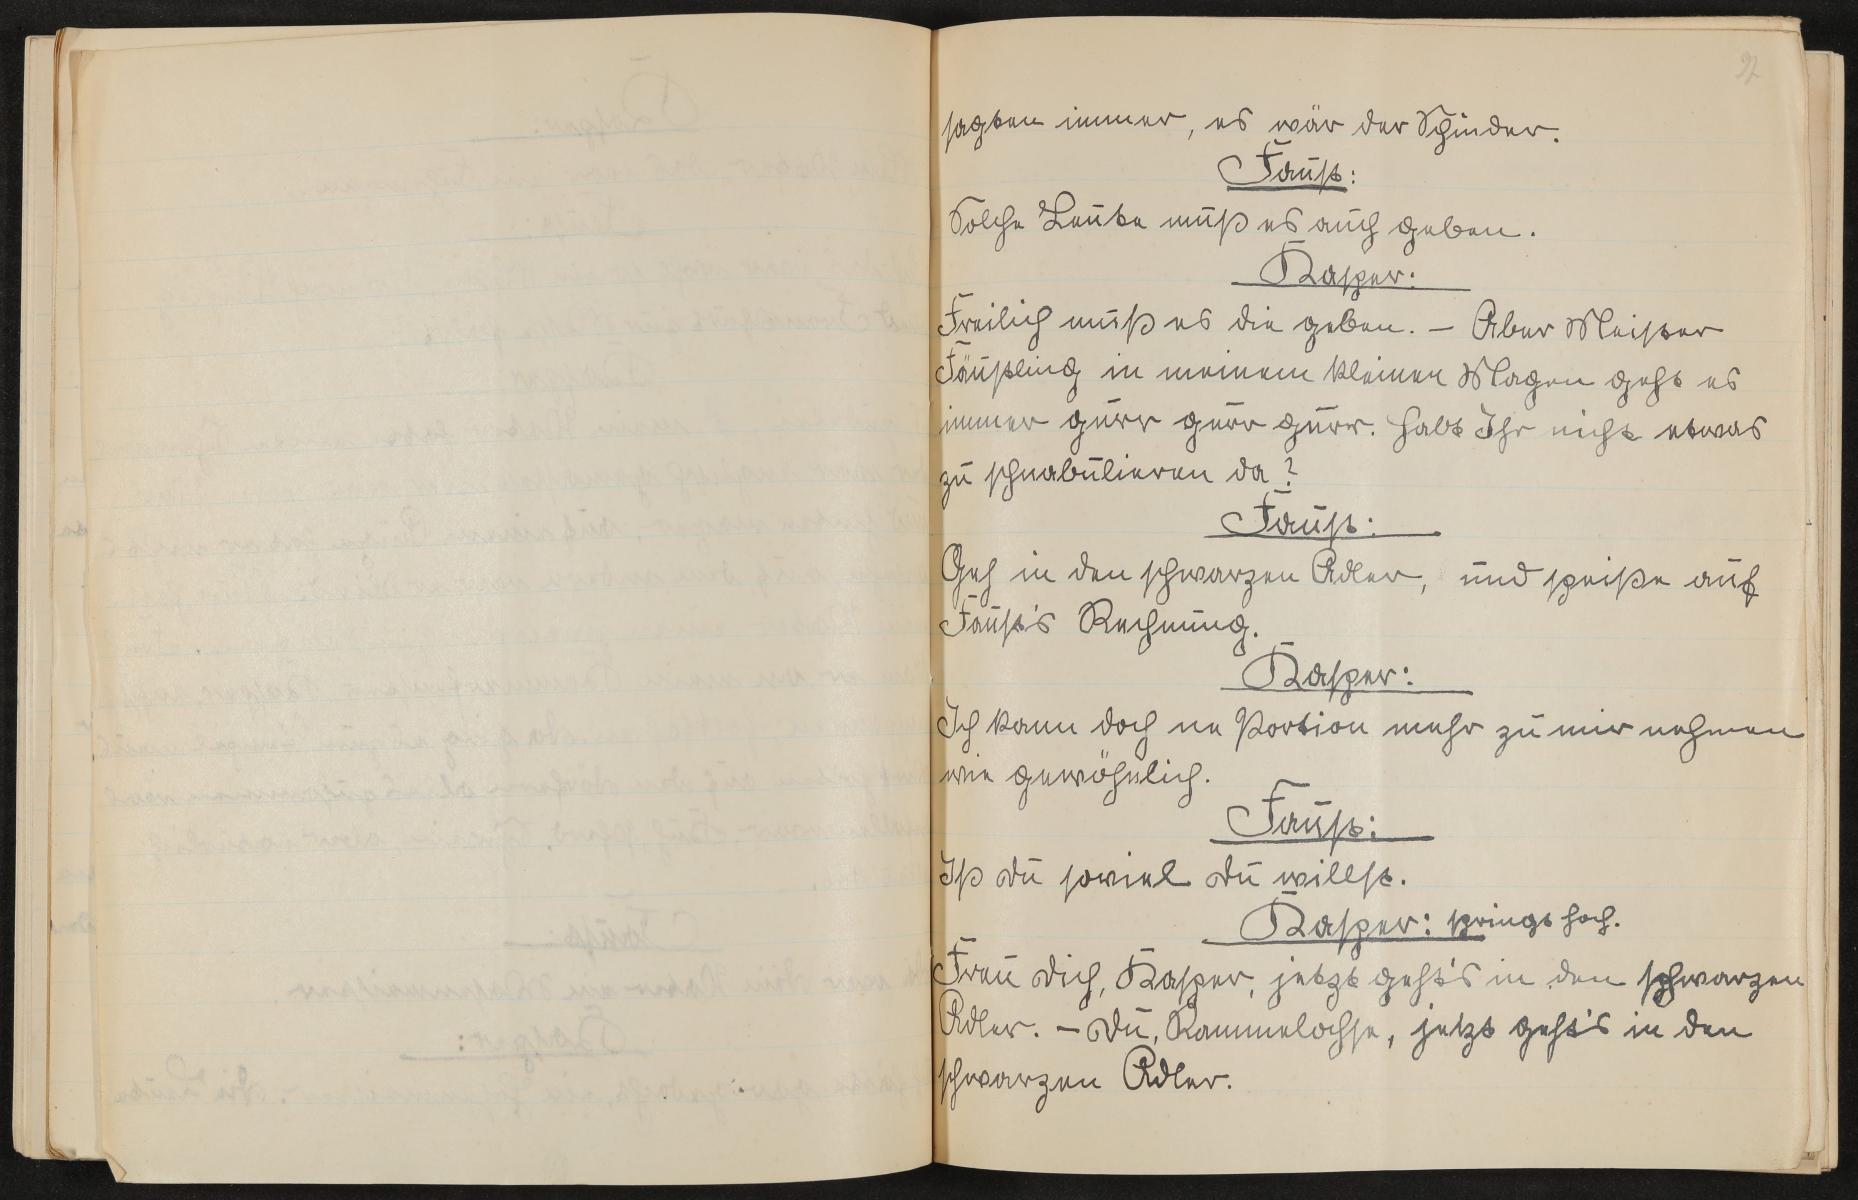 sagten immer, es wär der Schinder.
Faust:
Solche Leute muß es auch geben.
Kasper:
Freilich muß es die geben. – Aber Meister
Fäustling in meinem kleinen Magen geht es
immer gurr gurr gurr. Habt Ihr nicht etwas
zu schnabulieren da?
Faust:
Geh in den schwarzen Adler, und speiße auf
Faust's Rechnung.
Kasper:
Ich kann doch ne Portion mehr zu mir nehmen
wie gewöhnlich.
Faust:
Iß du soviel du willst.
Kasper: springt hoch.
Freu dich, Kasper, jetzt geht's in den schwarzen
Adler. – Du, Rammelochse, jetzt geht's in den
schwarzen Adler.